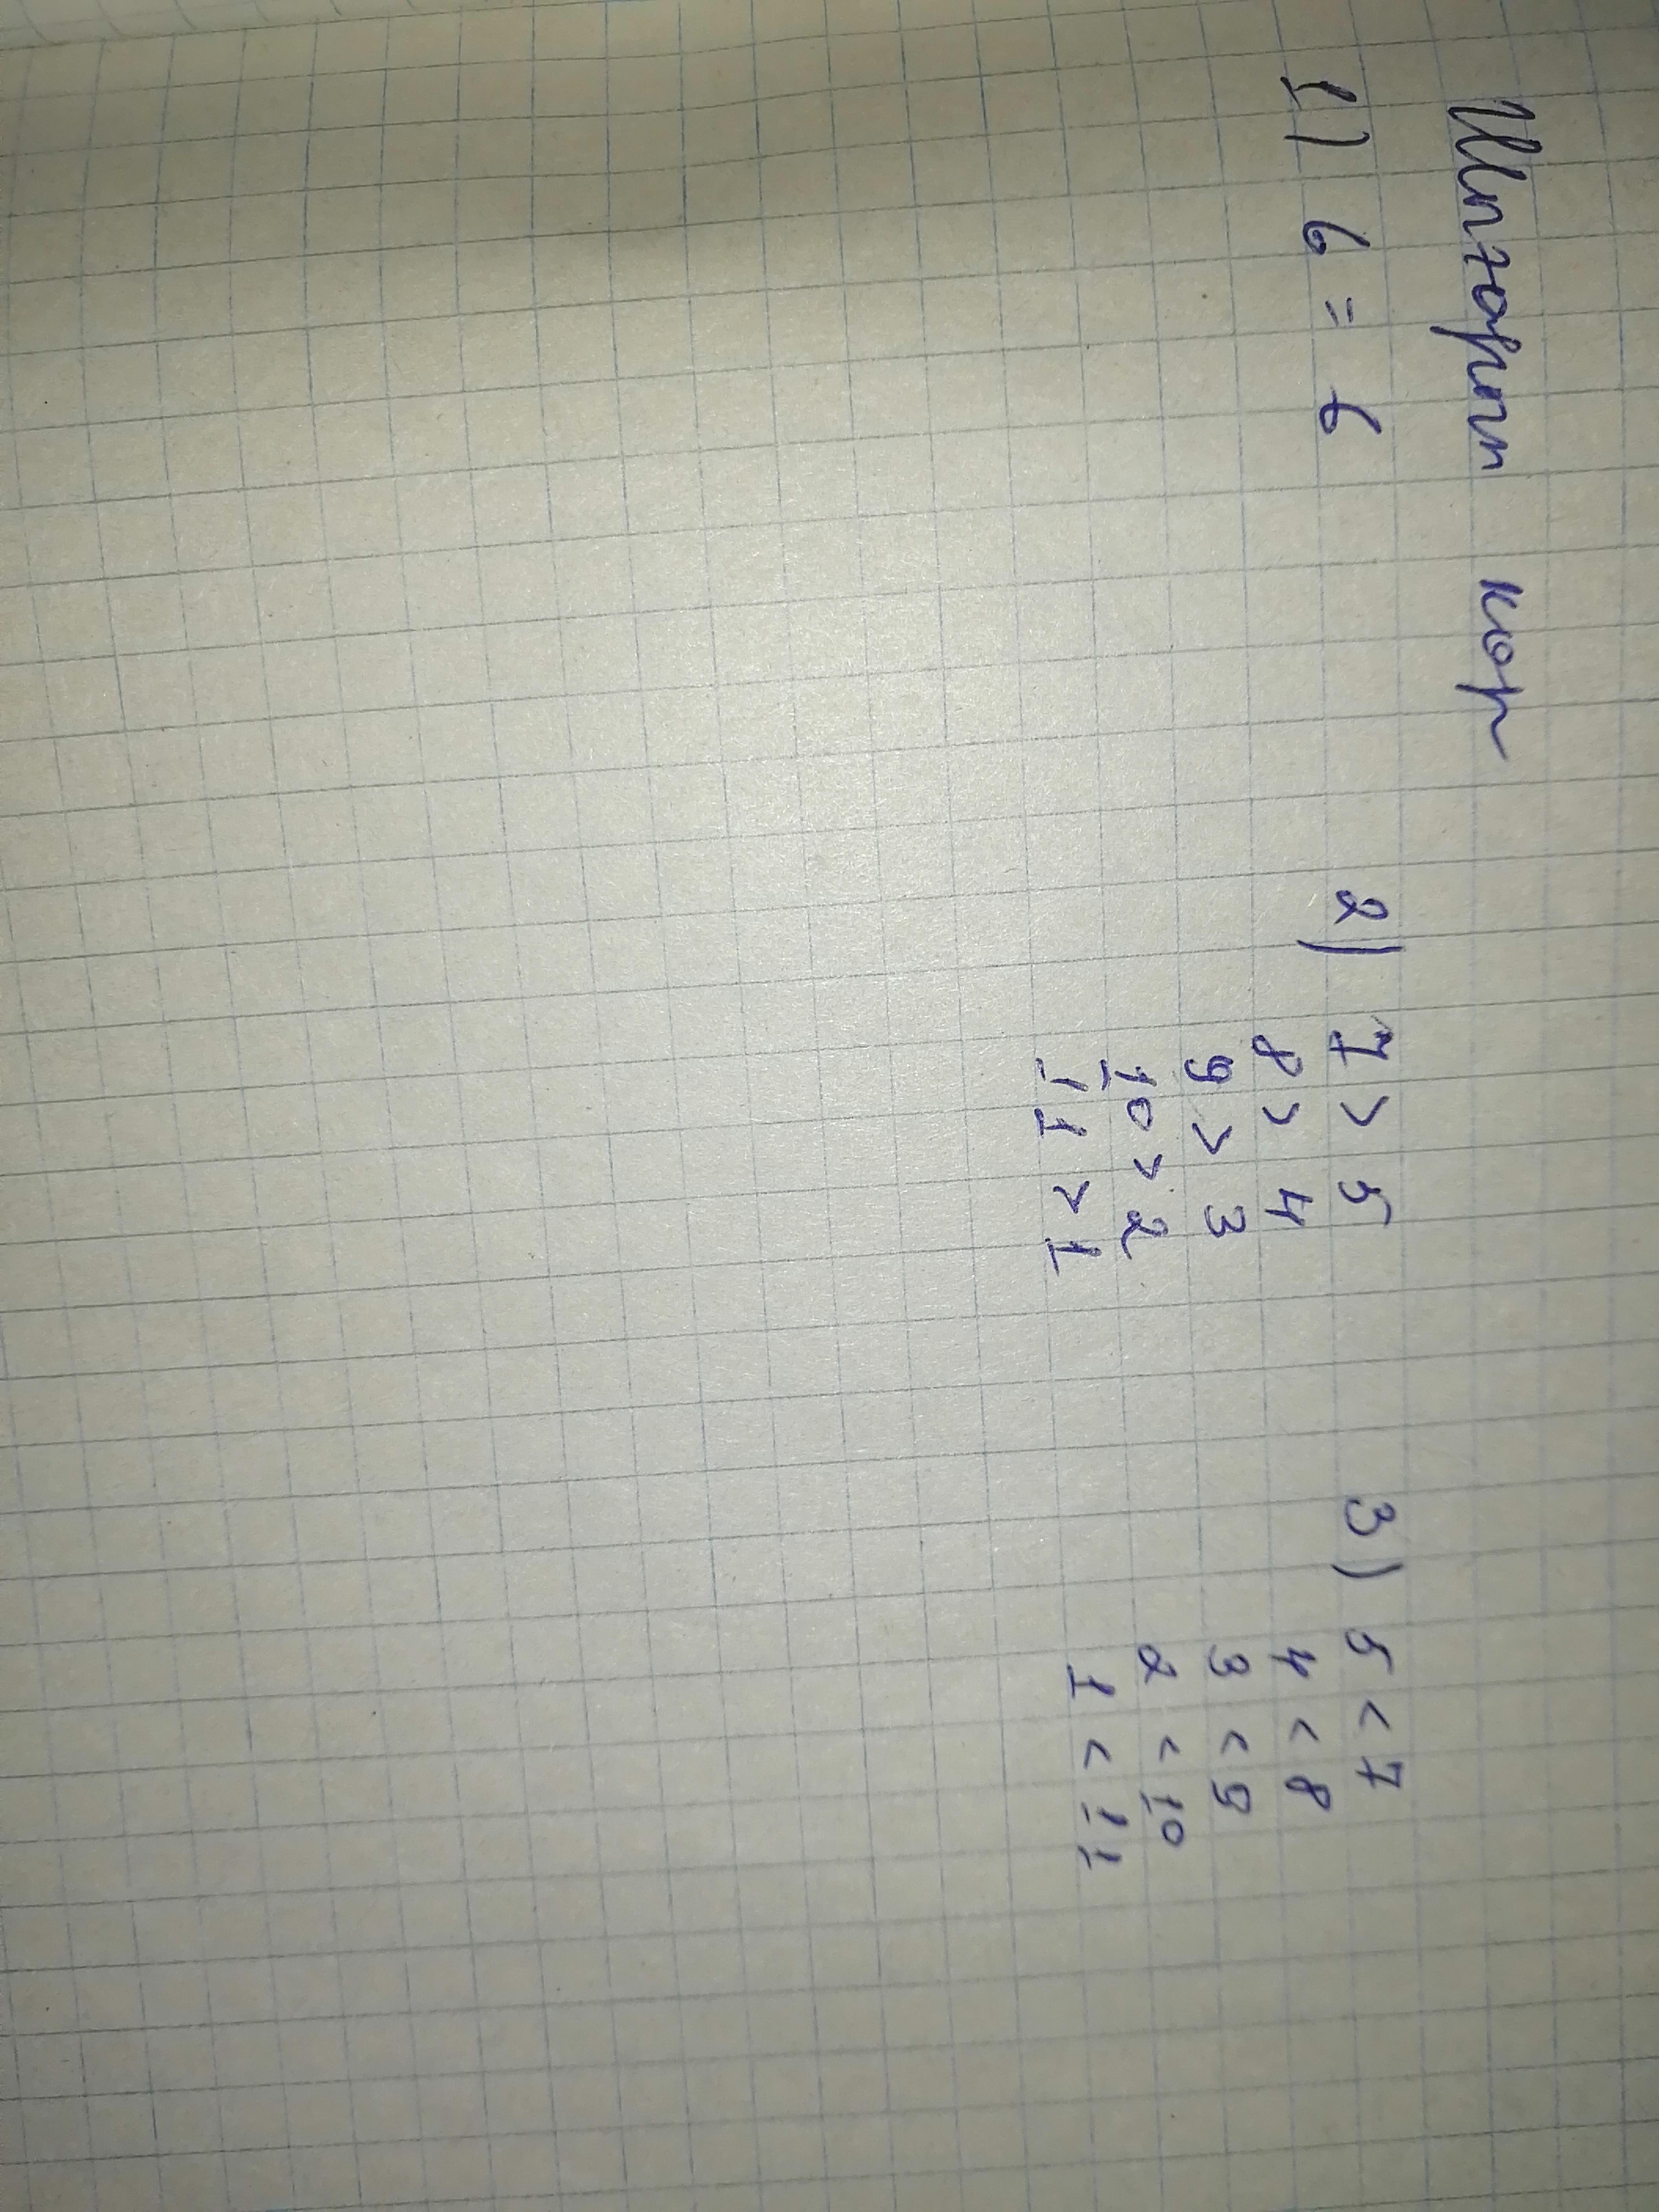 кор
1) 6 = 6 2) 7 > 5 3) 5 < 7
8 > 4 4 < 8
9 > 3 3 < 9
10 > 2 2 < 10
11 > 1 1 < 11